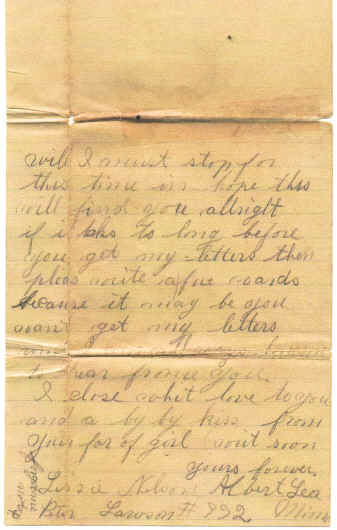 will I must stop for
this time in hope this
will find you allright
if i taks to long before
you get my letters then
pleas write a fue coards
because it may be you
wont get my letters
to hear from You.
I close whit love to you
and a by by kiss from
Your far of girl writ soon
yours forever.
Lissie Nelson Albert Lea
Peter Lawson # 892 Minn